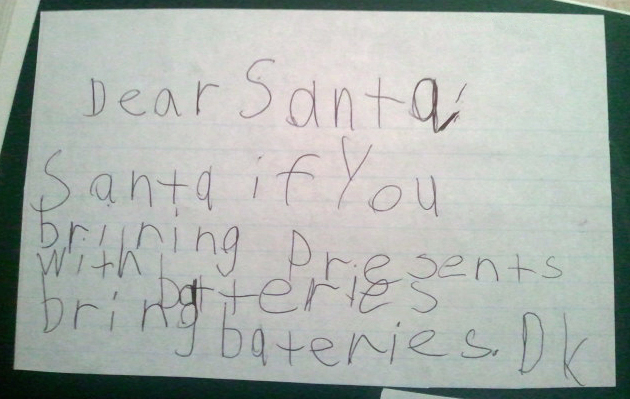 Dear Santa,
Santa if You
brining Presents
with batteries
bring bateries. Dk